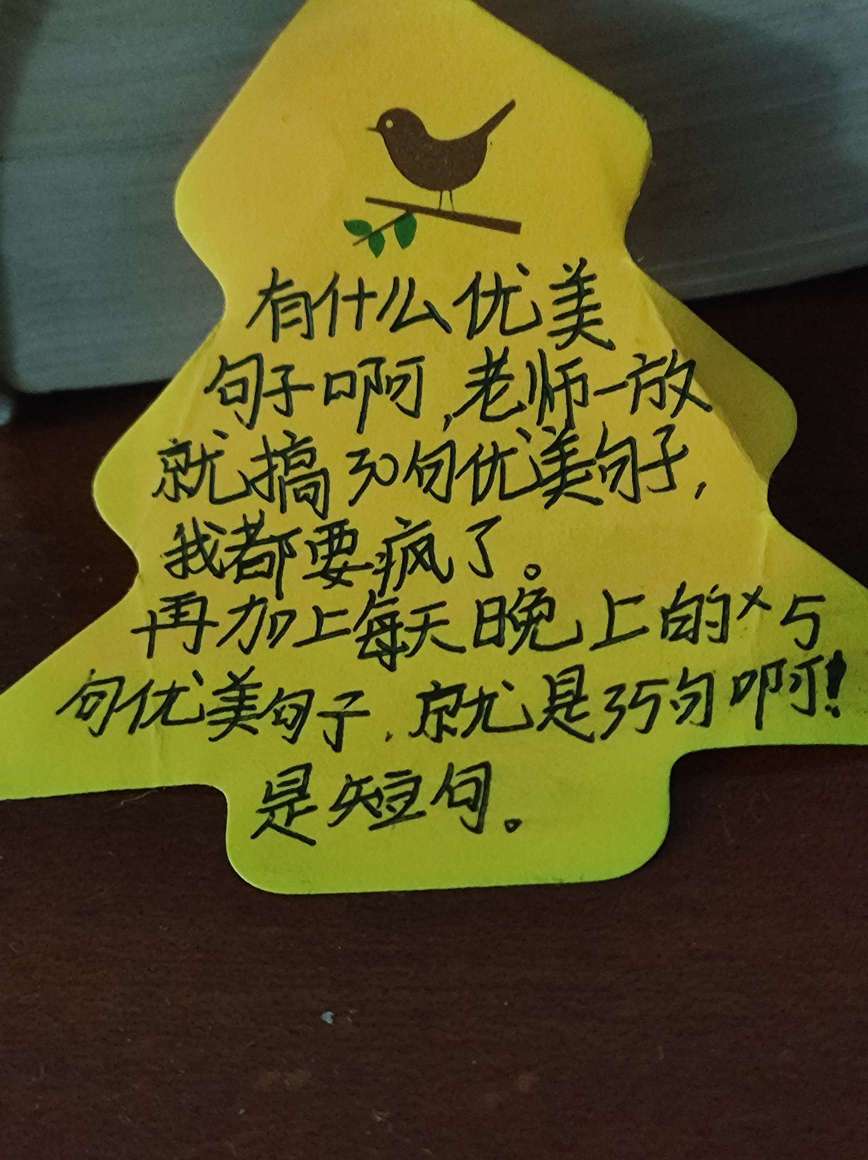 有什么优美
句子啊,老师一放
就搞30句优美句子,
我都要疯了。
再加上每天晚上的×5
句优美句子,就是35句啊!
是短句。